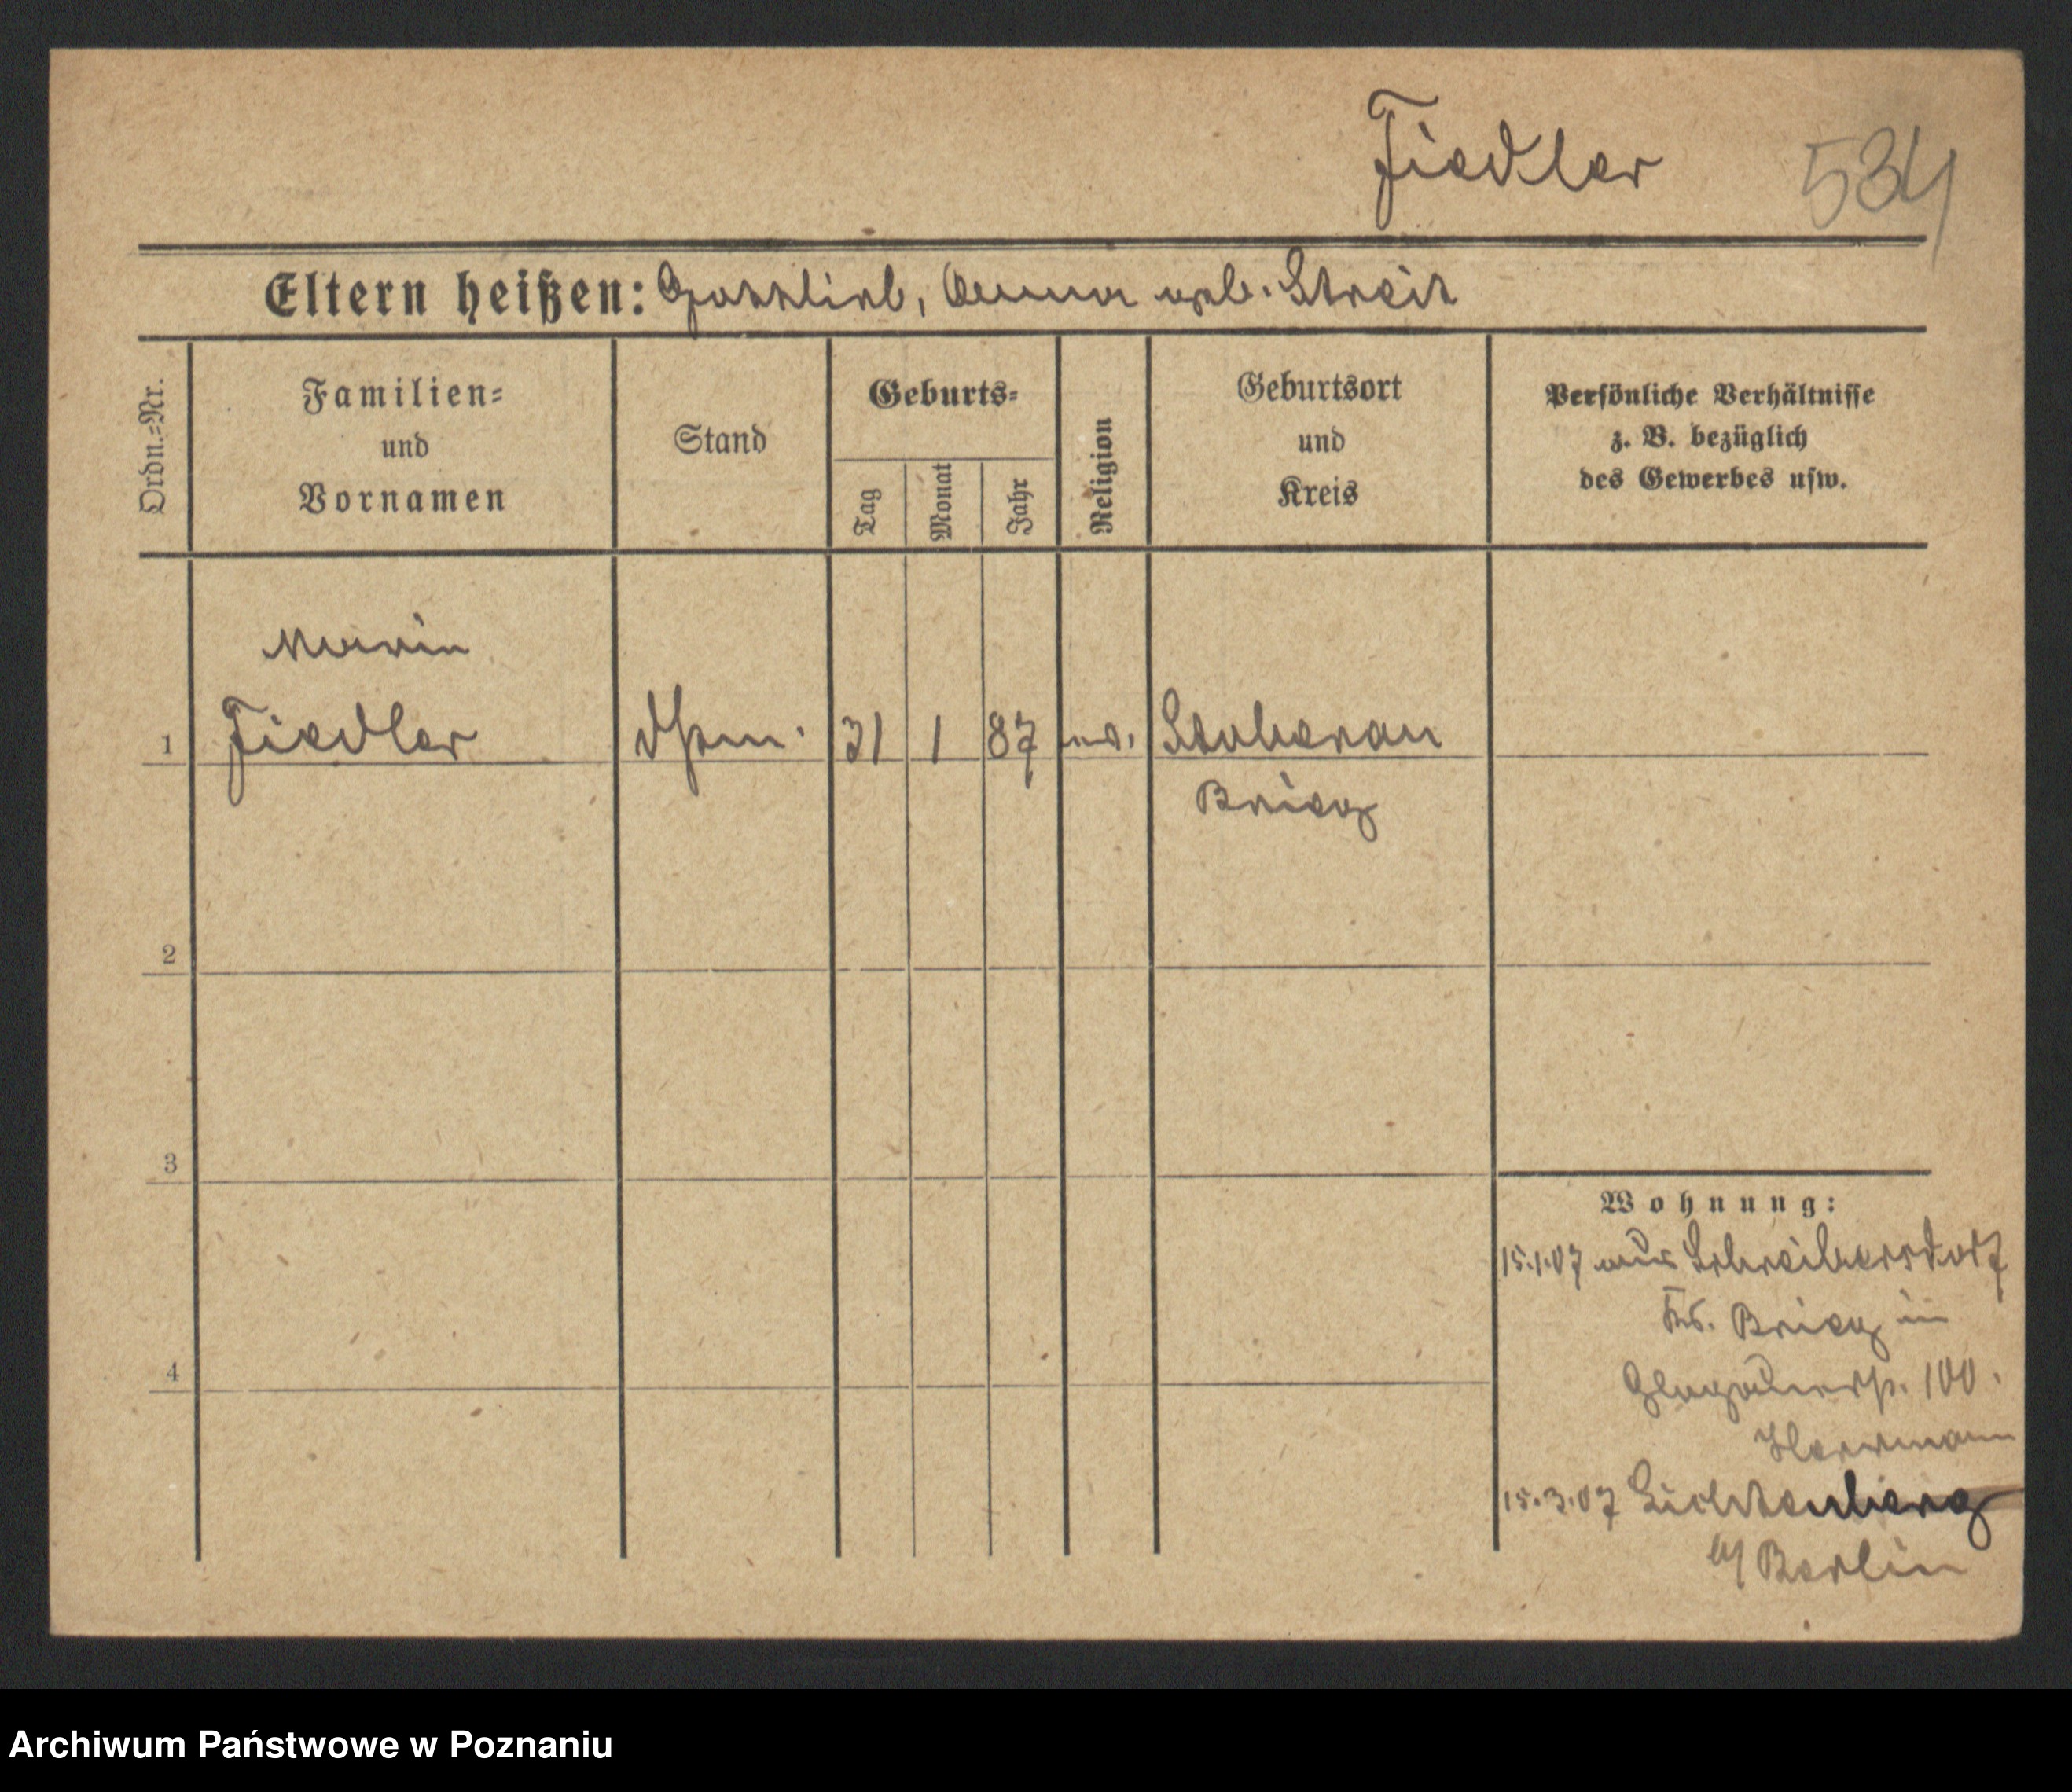 Fiedler 534
Eltern heißen: Gottlieb, Anna geb. Streit
Ordn.=Nr.
Familien=
und
Vornamen
Stand
Geburts=
Tag
Monat
Jahr
Religion
Geburtsort
und
Kreis
Persönliche Verhältnisse
z. B. bezüglich
des Gewerbes usw.
Maria
1 Fiedler 31 1 87 ev. Stoberau
Brieg
2
3
4
Wohnung:
15.1.07 aus Schreibersdorf
Kr. Brieg in
100.
Herrmann
15.3.07 Lichtenberg
b/ Berlin
Archiwum Państwowe w Poznaniu